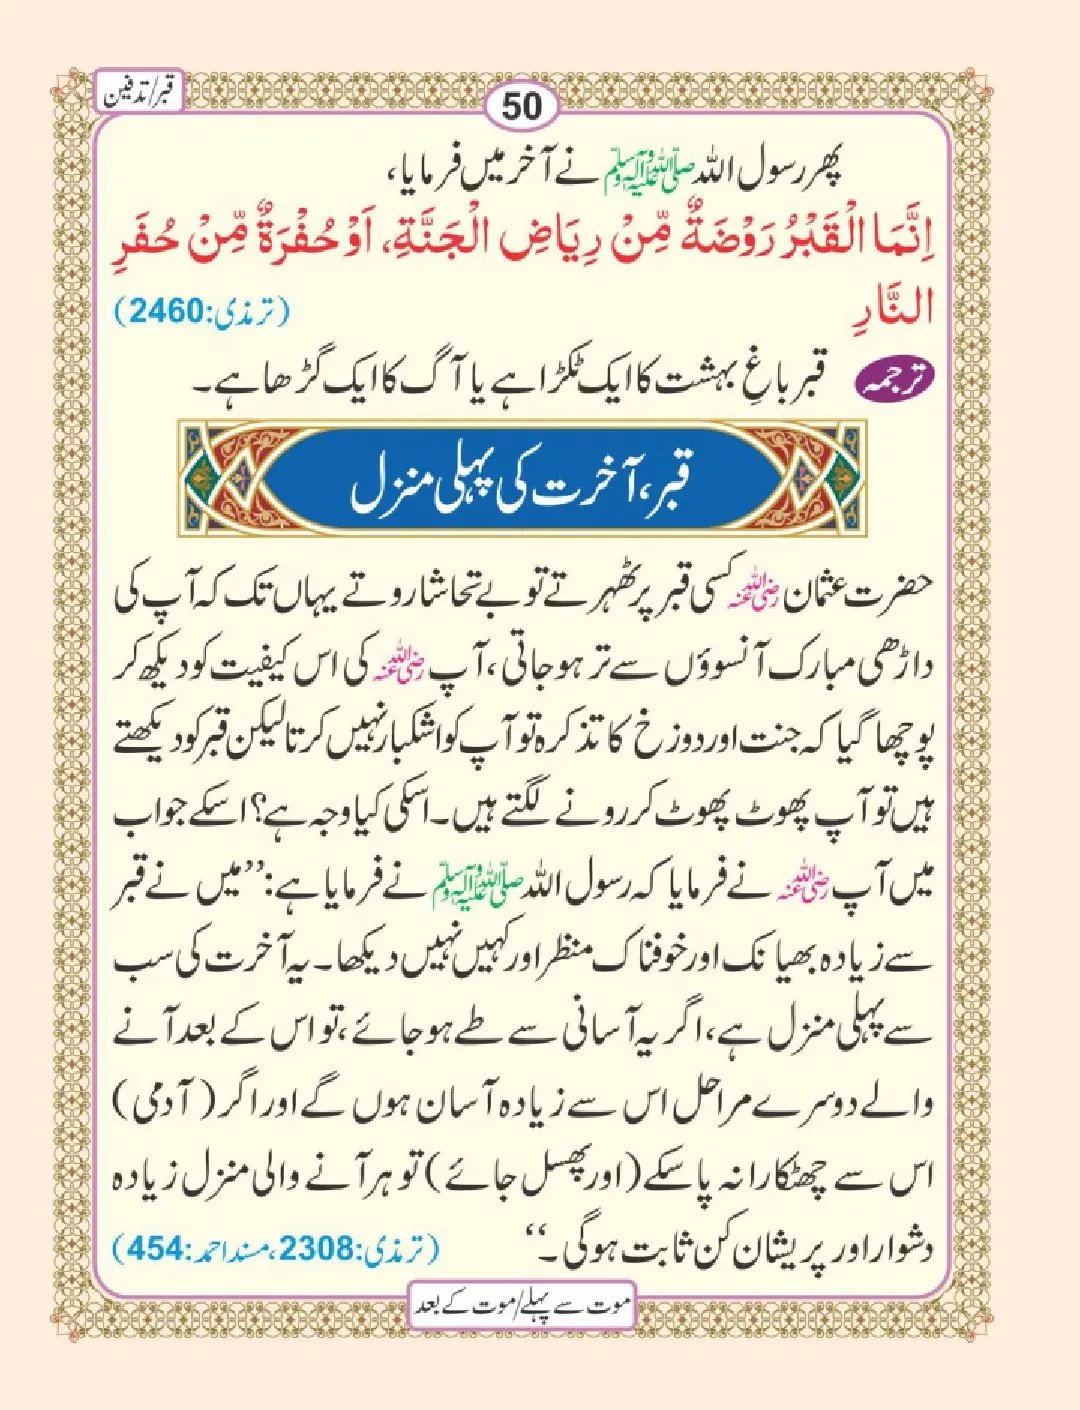 قبر/تدفین
50
پھر رسول اللہ ﷺ نے آخر میں فرمایا،
اِنَّمَا الْقَبْرُ رَوْضَةٌ مِّنْ رِيَاضِ الْجَنَّةِ، اَوْ حُفْرَةٌ مِّنْ حُفَرِ
النَّارِ (ترمذی:2460)
ترجمہ قبر باغِ بہشت کا ایک ٹکڑا ہے یا آگ کا ایک گڑھا ہے۔
قبر، آخرت کی پہلی منزل
حضرت عثمان رضی اللہ عنہ کسی قبر پر ٹھہرتے تو بے تحاشا روتے یہاں تک کہ آپ کی
داڑھی مبارک آنسوؤں سے تر ہو جاتی، آپ رضی اللہ عنہ کی اس کیفیت کو دیکھ کر
پوچھا گیا کہ جنت اور دوزخ کا تذکرہ تو آپ کو اشکبار نہیں کرتا لیکن قبر کو دیکھتے
ہیں تو آپ پھوٹ پھوٹ کر رونے لگتے ہیں۔ اسکی کیا وجہ ہے؟ اسکے جواب
میں آپ رضی اللہ عنہ نے فرمایا کہ رسول اللہ ﷺ نے فرمایا ہے: ”میں نے قبر
سے زیادہ بھیانک اور خوفناک منظر اور کہیں نہیں دیکھا۔ یہ آخرت کی سب
سے پہلی منزل ہے، اگر یہ آسانی سے طے ہو جائے، تو اس کے بعد آنے
والے دوسرے مراحل اس سے زیادہ آسان ہوں گے اور اگر (آدمی)
اس سے چھٹکارا نہ پا سکے (اور پھسل جائے) تو ہر آنے والی منزل زیادہ
دشوار اور پریشان کن ثابت ہوگی۔“ (ترمذی:2308، مسند احمد:454)
موت سے پہلے/موت کے بعد